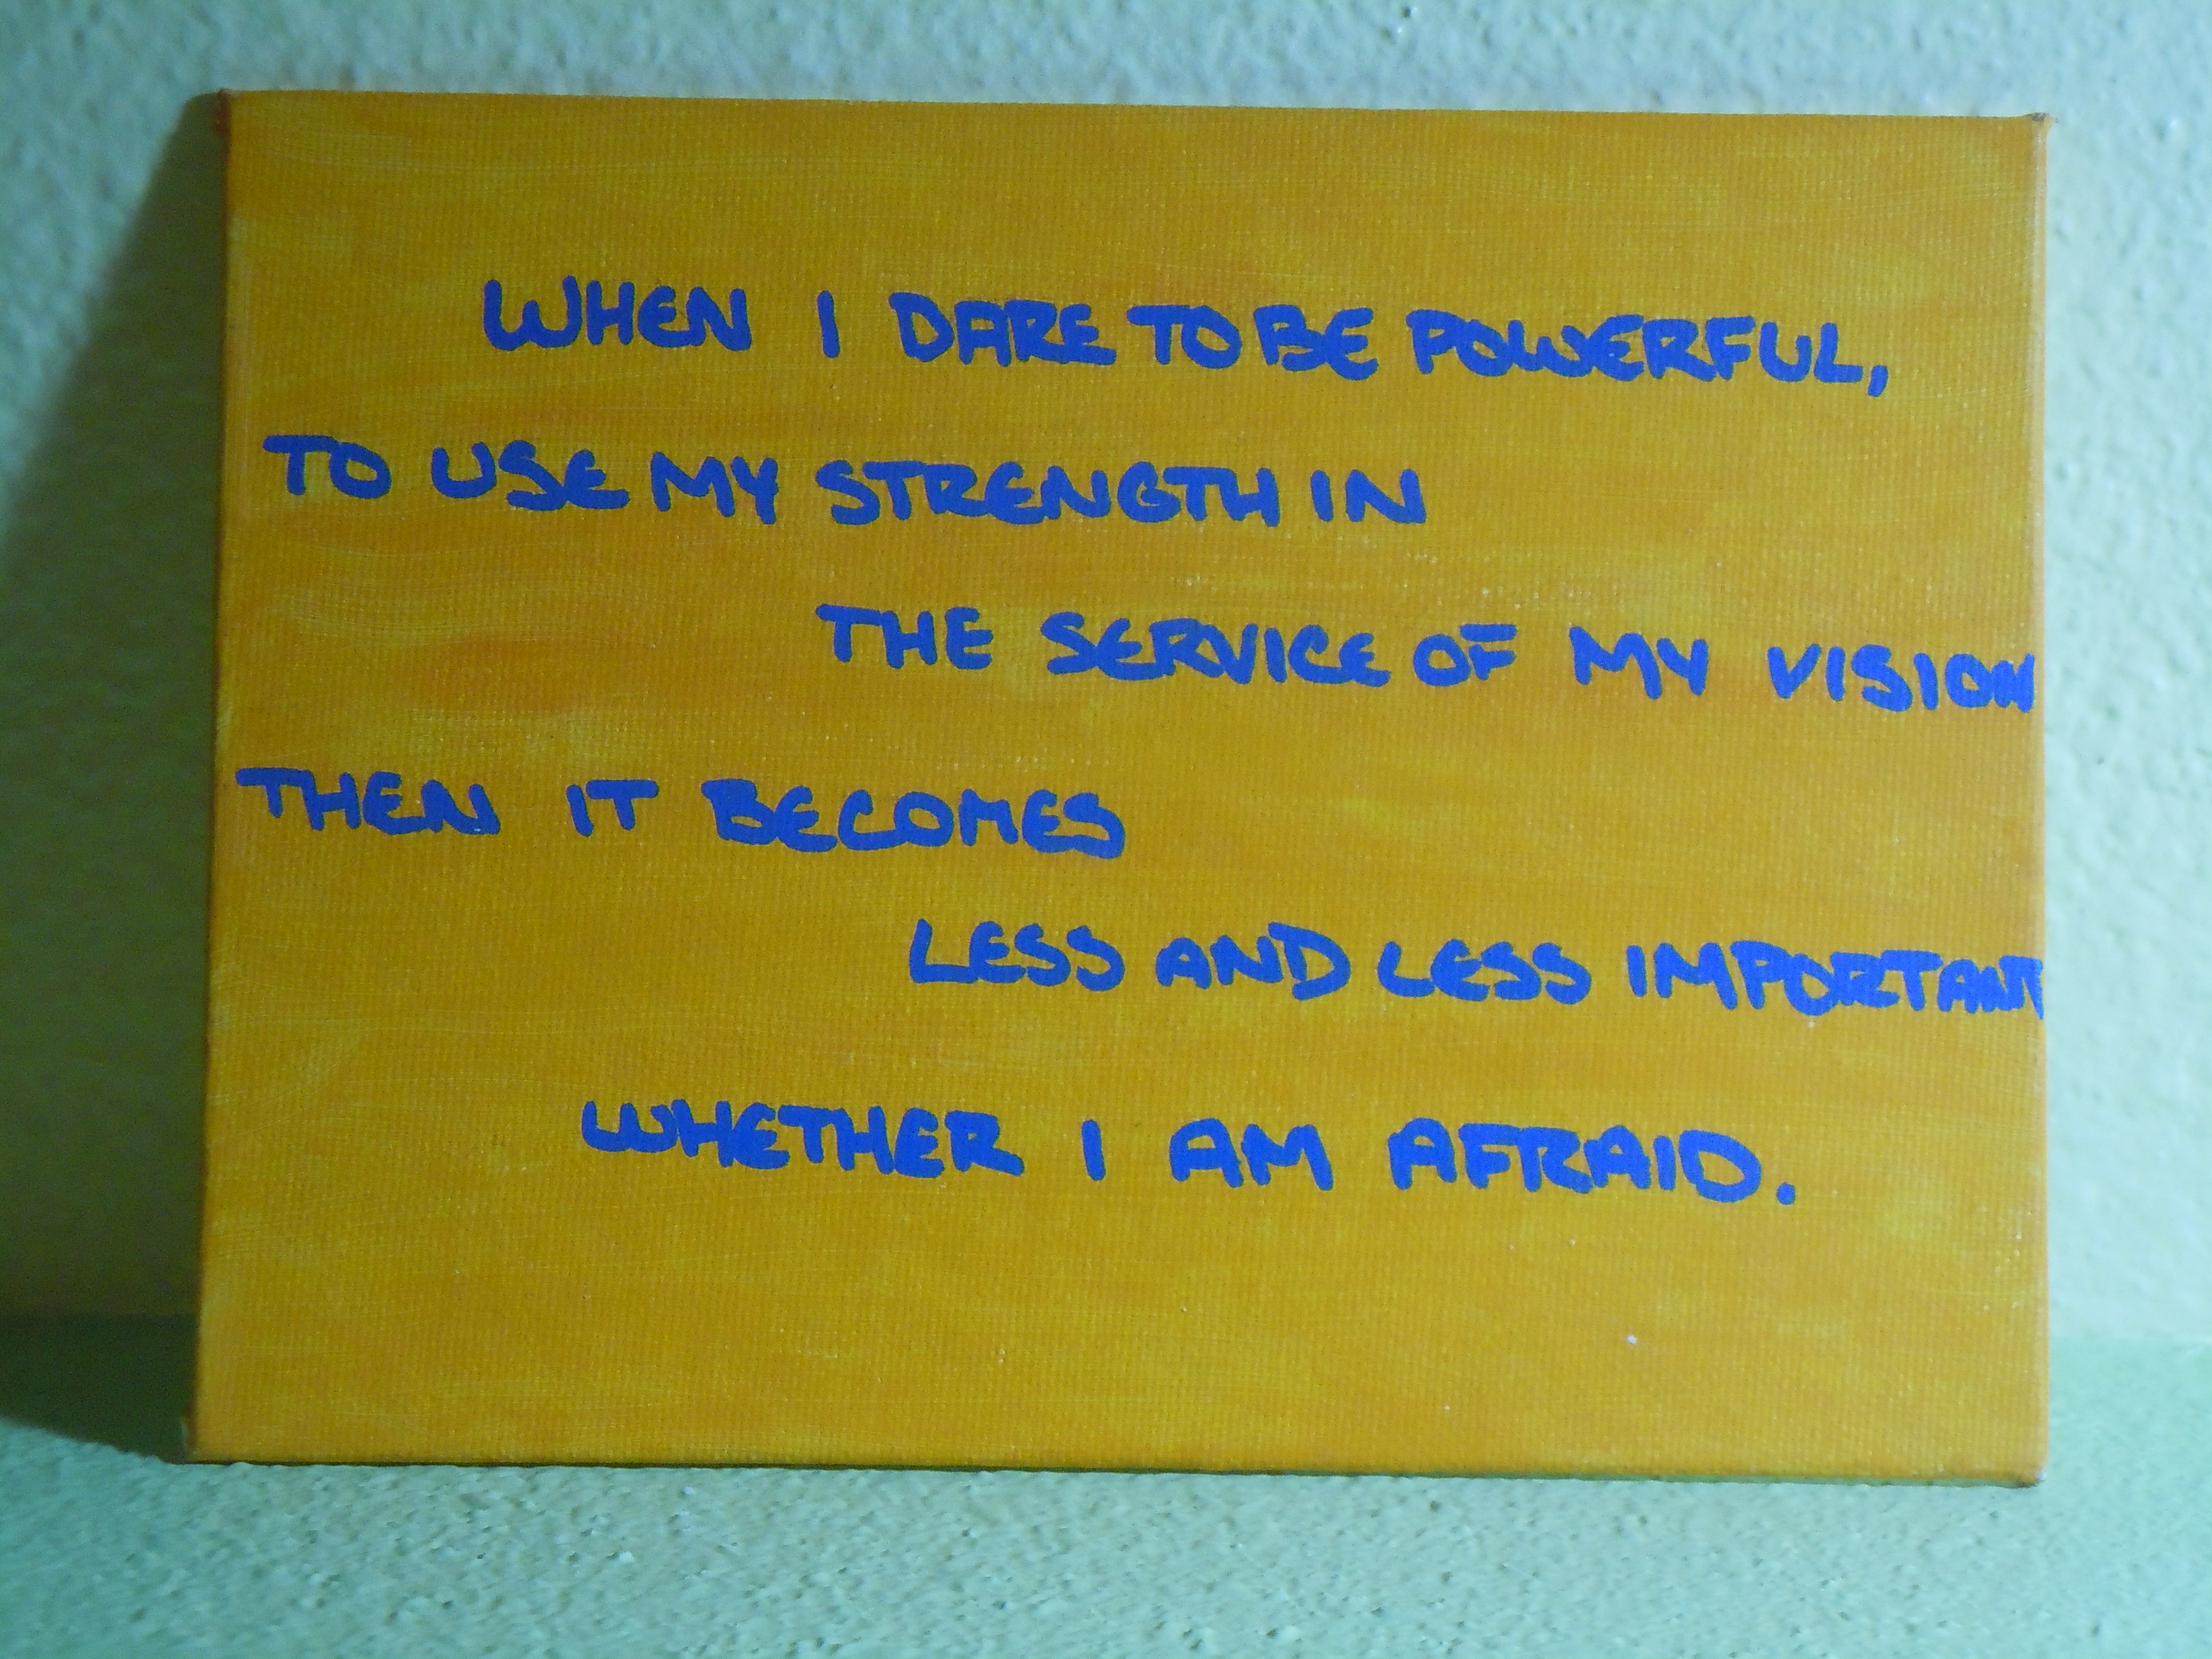 WHEN I DARE TO BE POWERFUL,
TO USE MY STRENGTH IN
THE SERVICE OF MY VISION
THEN IT BECOMES
LESS AND LESS IMPORTANT
WHETHER I AM AFRAID.